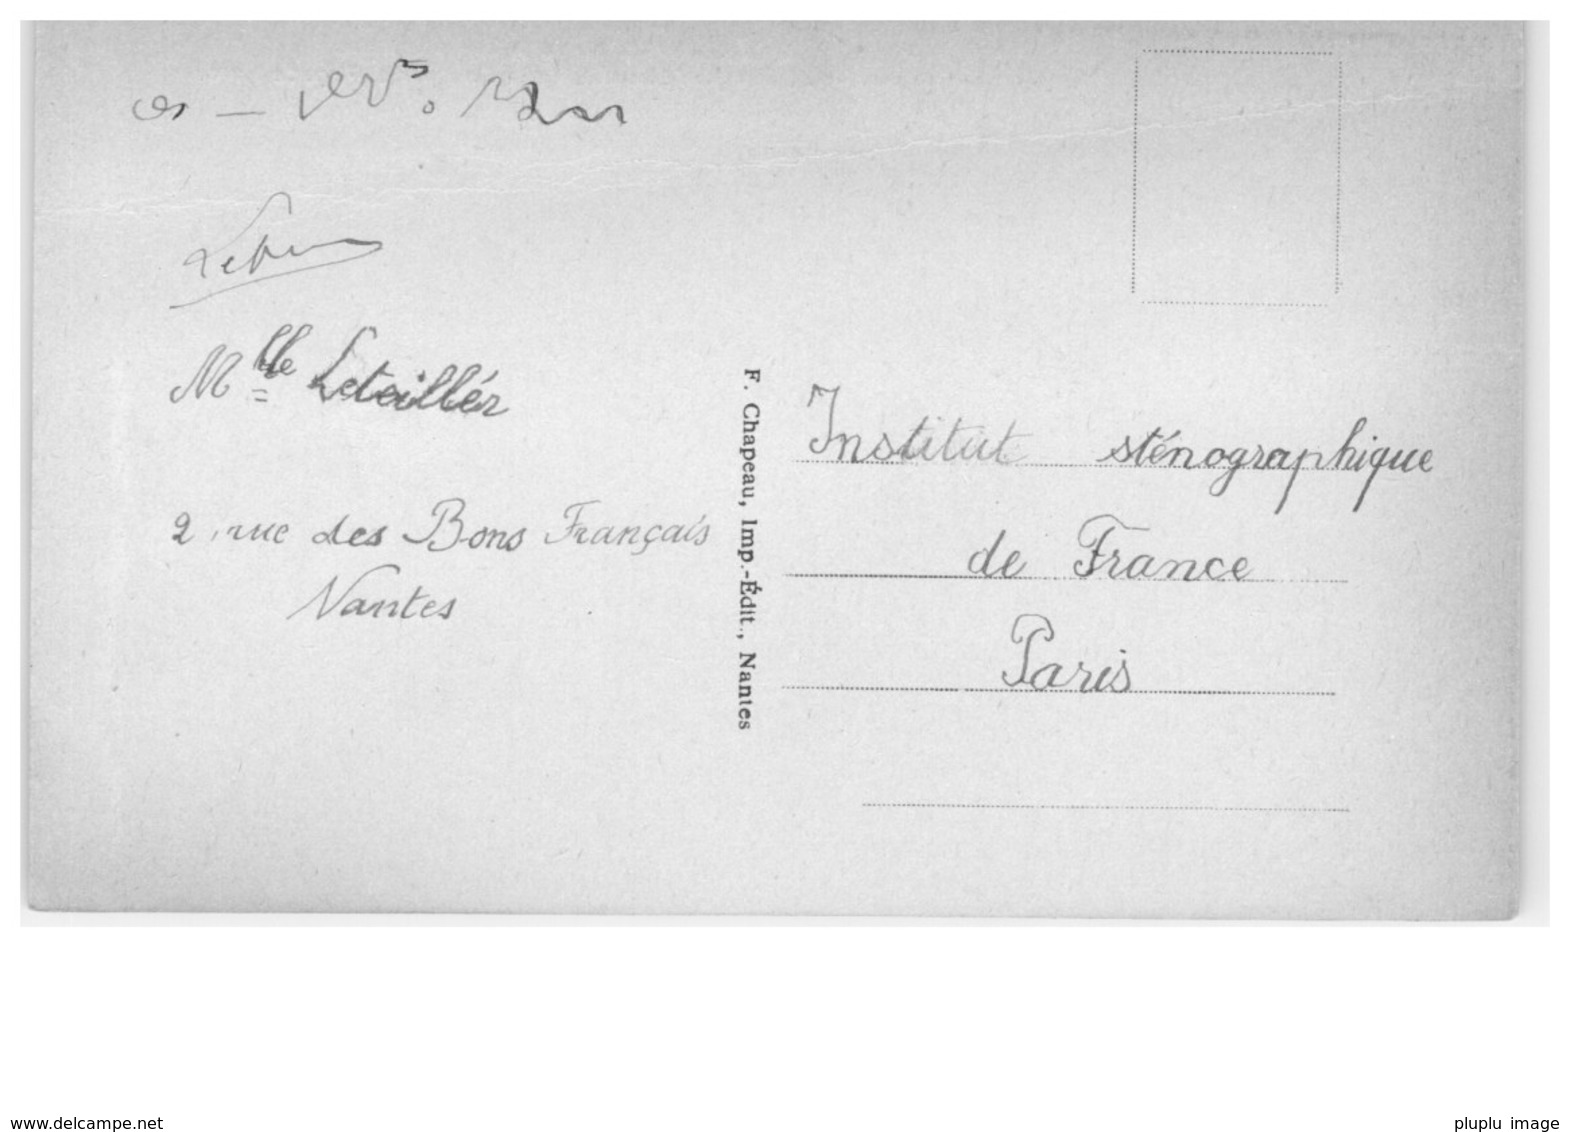 Mlle Leteillér
2, rue des Bons Français
Nantes
F. Chapeau, Imp.-Édit., Nantes
Institut sténographique
de France
Paris
delcampe.com
pluplu image